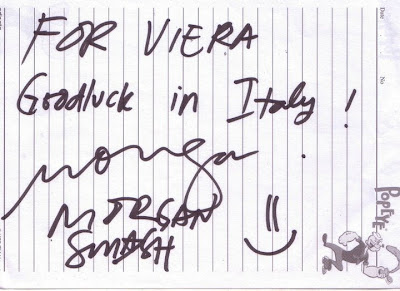 FOR VIERA
Goodluck in Italy !
MORGAN
SMASH
Date
No
POPEYE